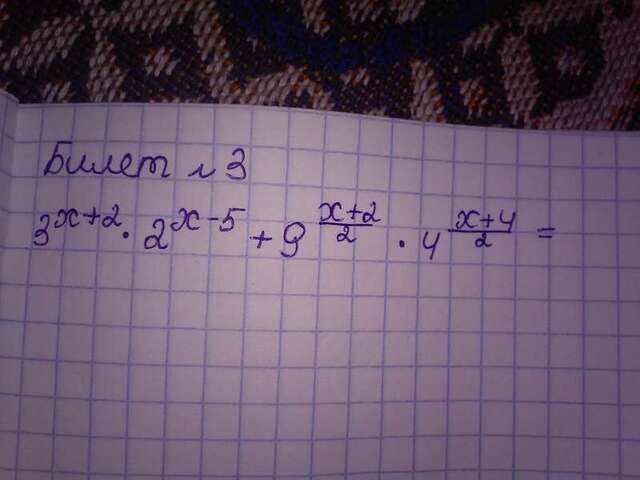 Билет № 3
3^{x+2} · 2^{x-5} + 9^{\frac{x+2}{2}} · 4^{\frac{x+4}{2}} =